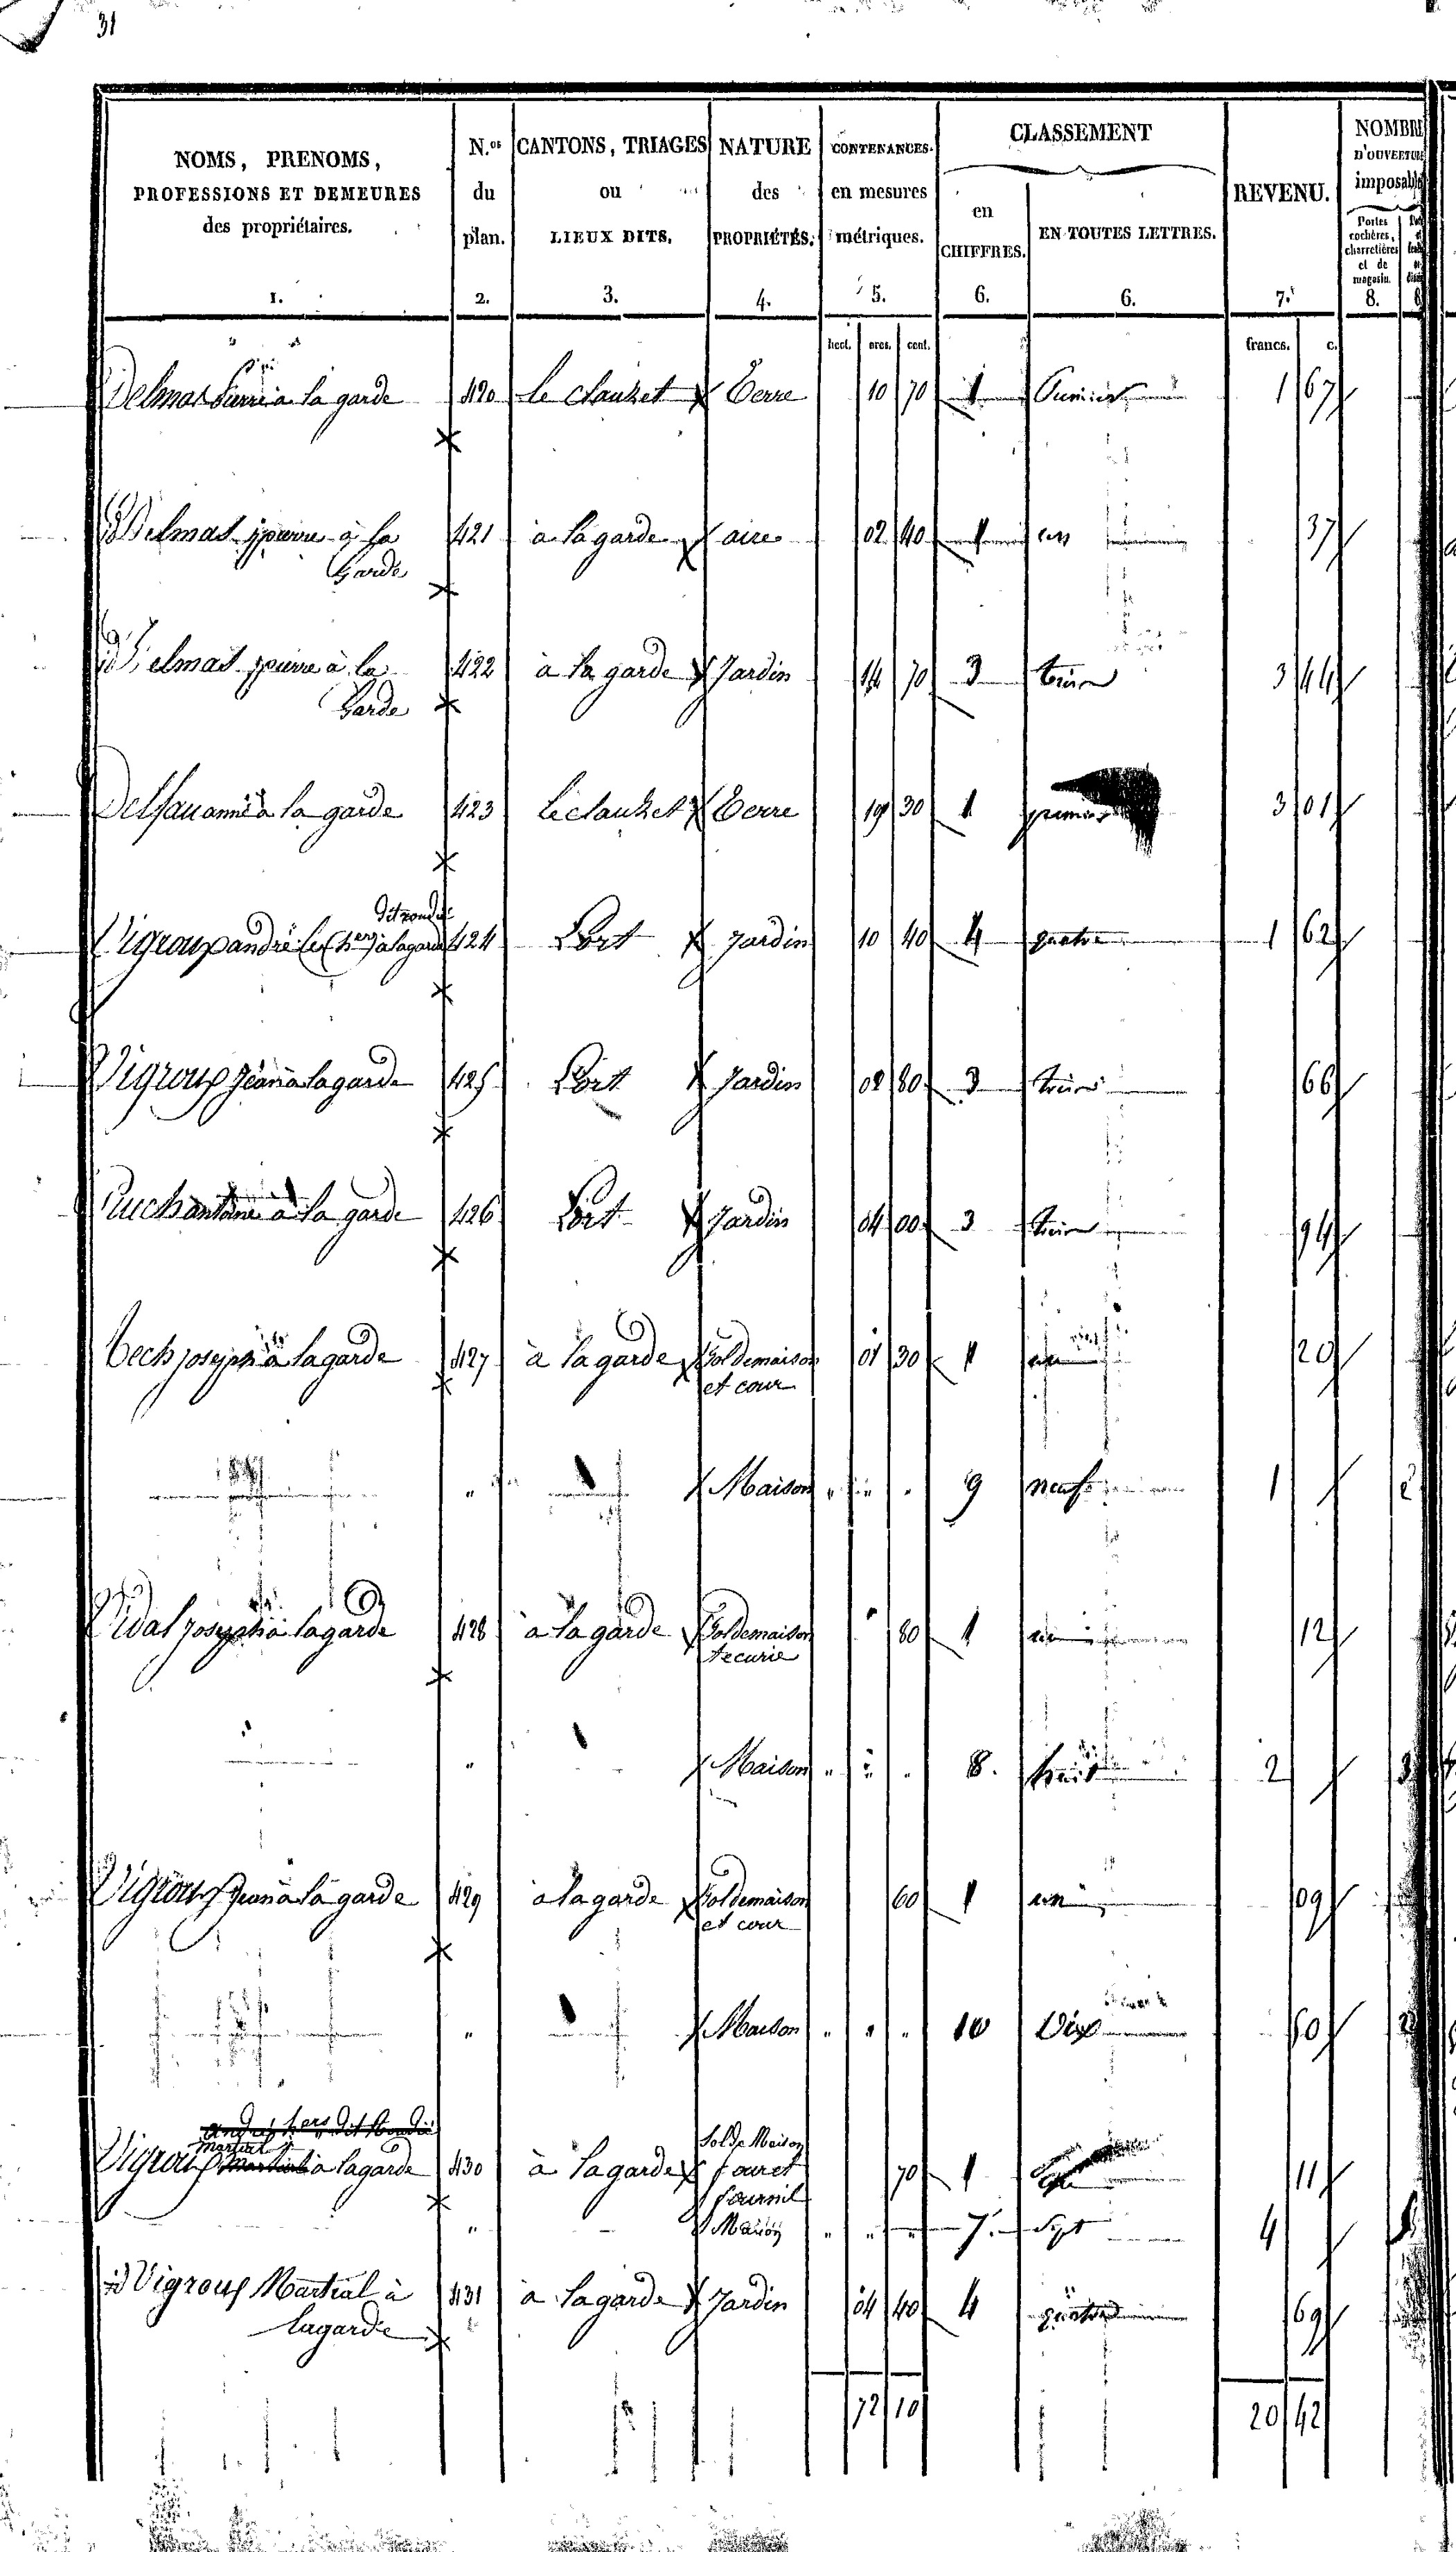 31
NOMS, PRENOMS, PROFESSIONS ET DEMEURES des propriétaires. 1.
N.os du plan. 2.
CANTONS, TRIAGES ou LIEUX DITS. 3.
NATURE des PROPRIÉTÉS. 4.
CONTENANCES. en mesures métriques. 5.
CLASSEMENT
en CHIFFRES. 6.
EN TOUTES LETTRES. 6.
REVENU. 7.
NOMBRE D'OUVERTURE imposable
Portes cochères, charretières et de magasin. 8.
hect. ares. cent. francs. c.
Delmas à la garde 420 le clauzet Terre 10 70 1 1 67
Delmas jpierre à la garde 421 à lagarde aire 02 40 1 un 37
Delmas jpierre à la garde 422 à la garde Jardin 14 70 3 trois 3 44
Delfau anne à la garde 423 le clauzet Terre 19 30 1 premier 3 01
Vigroux andré à lagarde 424 Lort Jardin 10 40 4 quatre 1 62
Vigroux jean à lagarde 425 Lort Jardin 02 80 3 trois 66
Puech antoine à la garde 426 Lort Jardin 04 00 3 trois 94
Tech joseph à lagarde 427 à lagarde Sol de maison et cour 01 30 1 un 20
" Maison " " " 9 neuf 1 2
Vidal joseph à lagarde 428 à la garde Sol de maison +ecurie 80 1 un 12
" Maison " " " 8. huit 2 3
Vigroux jean à la garde 429 à la garde Sol de maison et cour 60 1 un 09
" Maison " " " 10 Dix 60 2
andré
martial
Vigroux martial à lagarde 430 à lagarde Sol de Maison four et fournil 70 1 11
" Maison " " " 7. Sept 4
id Vigroux Martial à lagarde 431 à lagarde Jardin 04 40 4 quatre 69
72 10 20 42